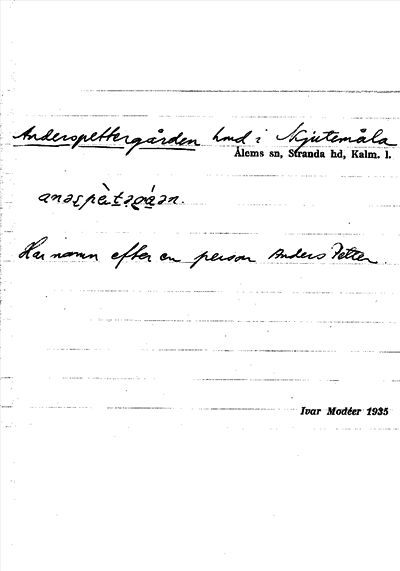 Anderspettergården hmd i Skjutemåla
Ålems sn, Stranda hd, Kalm. l.
Har namn efter en person Anders Petter
Ivar Modéer 1935